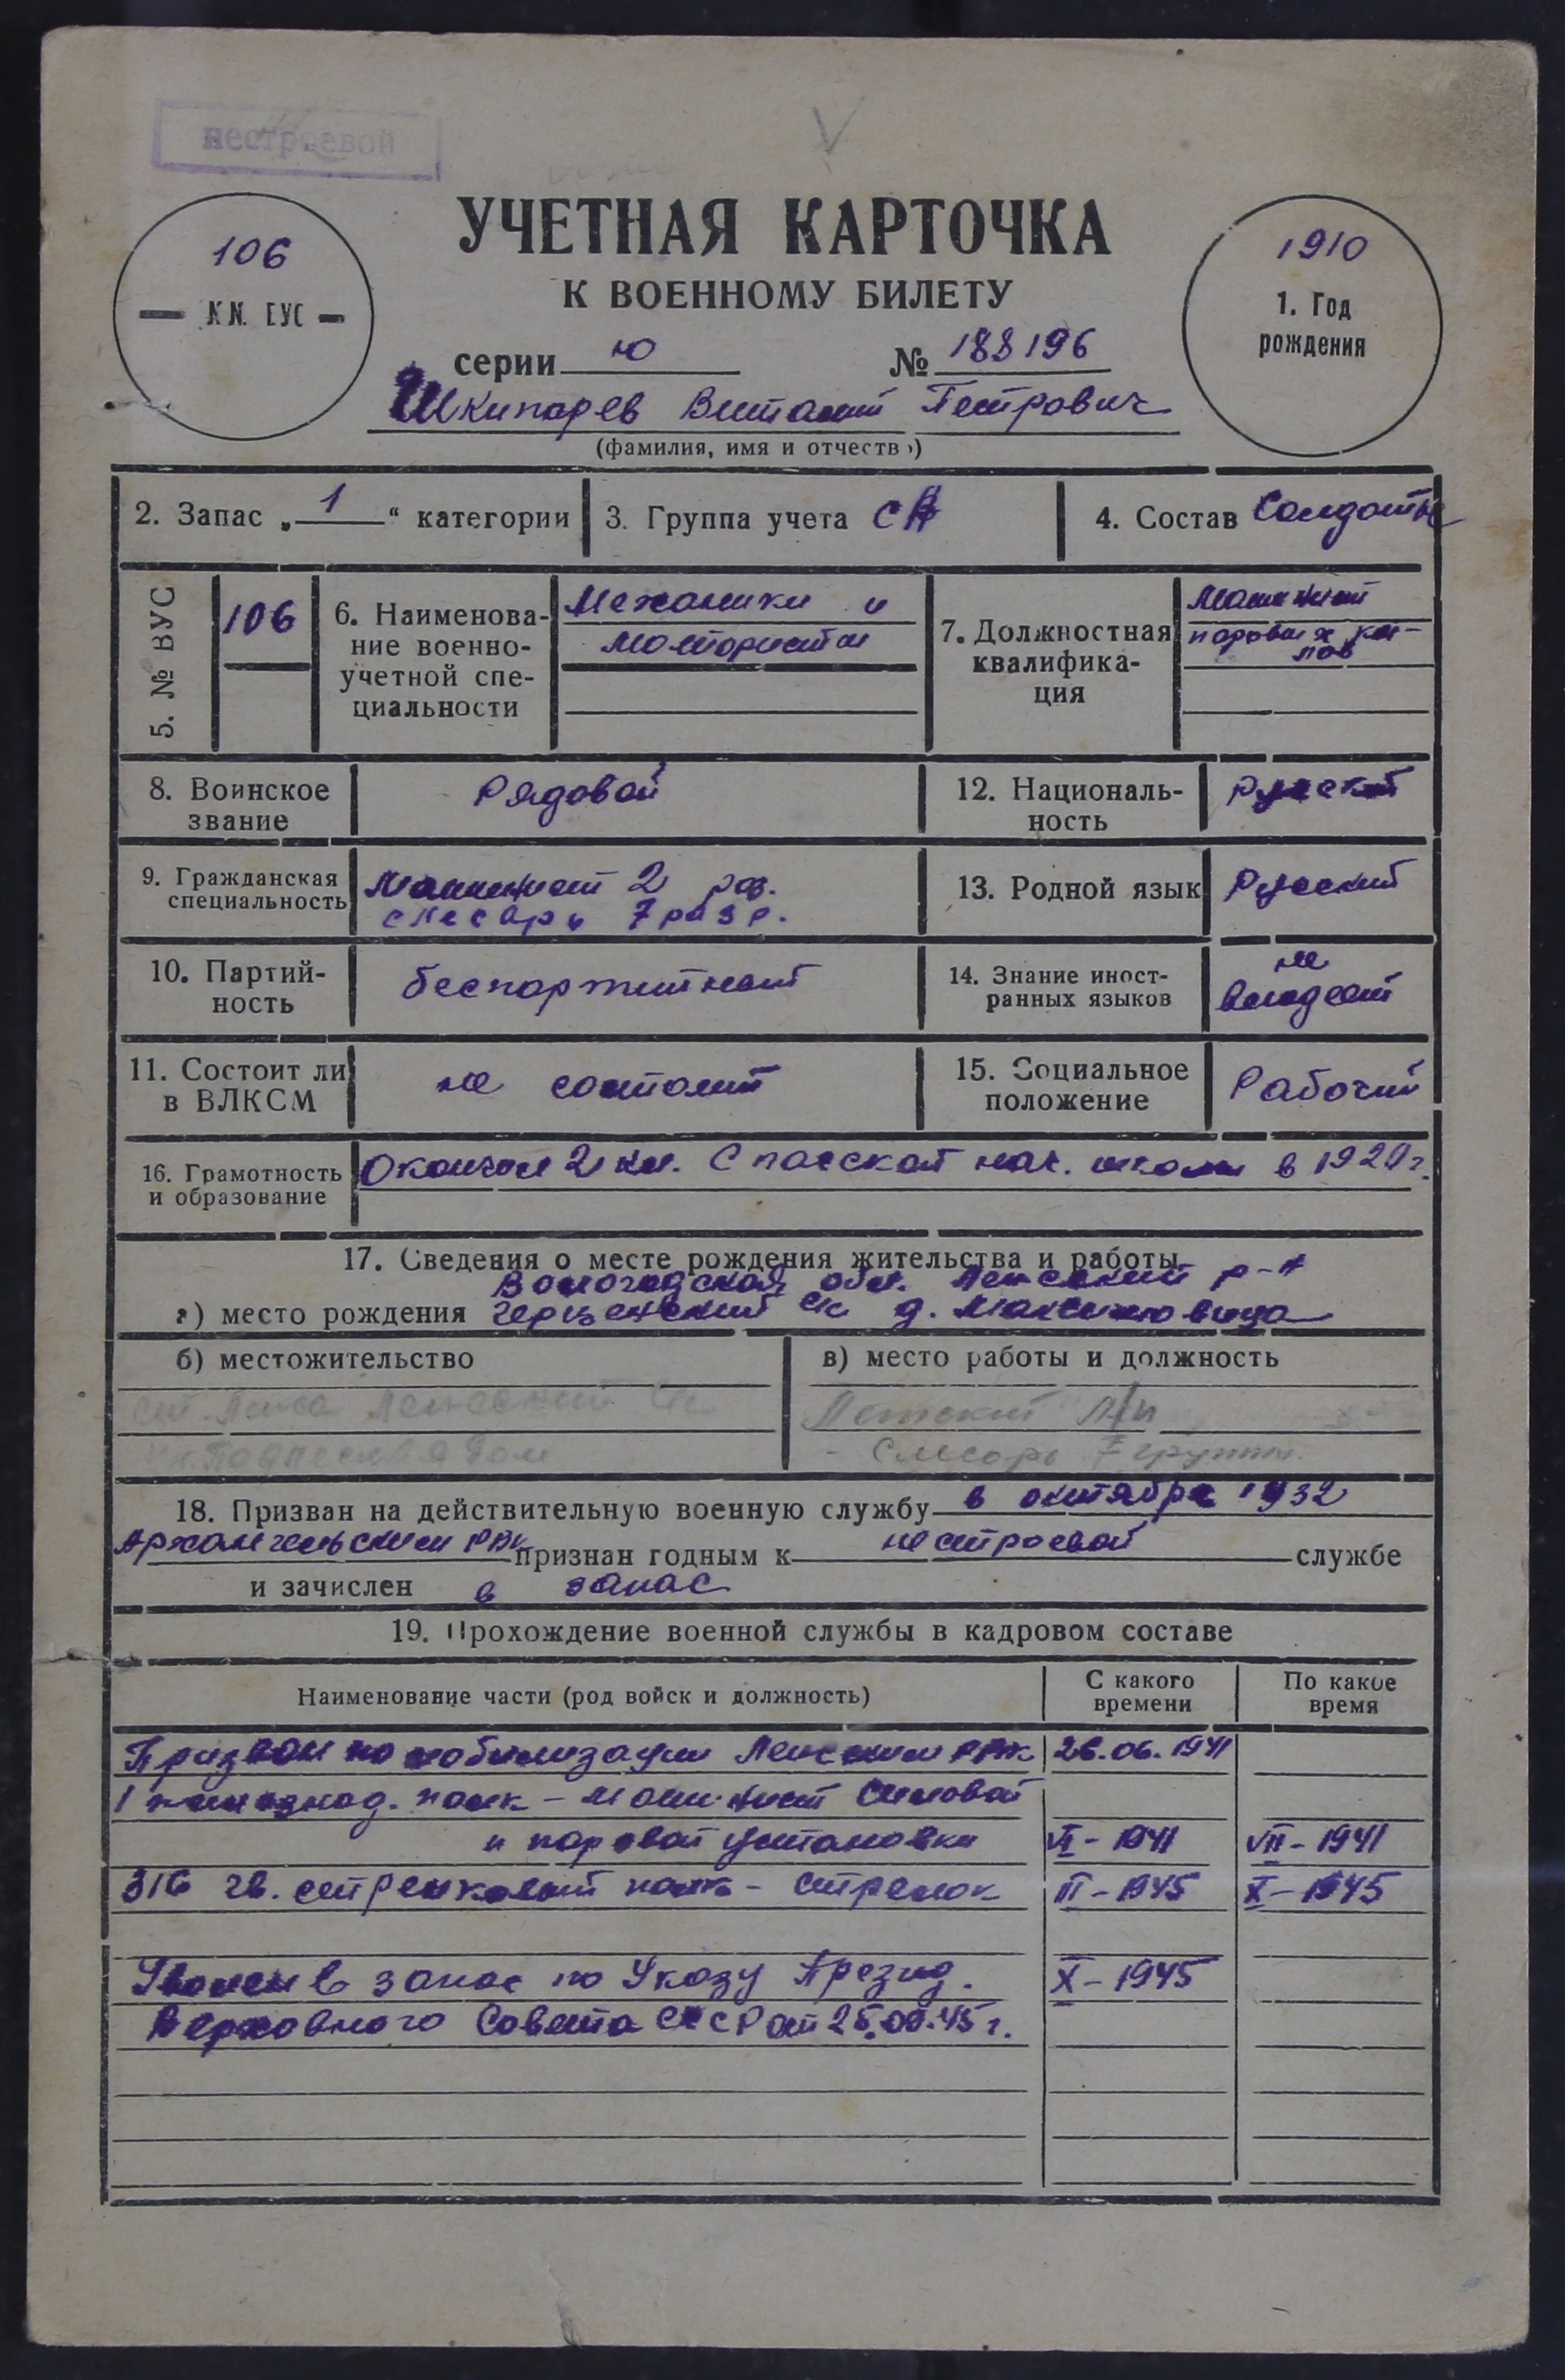 нестроевой
УЧЕТНАЯ КАРТОЧКА
К ВОЕННОМУ БИЛЕТУ
106
№№ ВУС
1910
1. Год
рождения
серии Ю № 188196
Шкипарев Виталий Петрович
(фамилия, имя и отчество)
2. Запас „1“ категории
3. Группа учета СА
4. Состав Солдаты
5. № ВУС
106
6. Наименова-
ние военно-
учетной спе-
циальности
Механики и
мотористы
7. Должностная
квалифика-
ция
Машинист
паровых кот-
лов
8. Воинское
звание
Рядовой
12. Националь-
ность
Русский
9. Гражданская
специальность
Машинист 2 раз.
слесарь 7 разр.
13. Родной язык
Русский
10. Партий-
ность
беспартийный
14. Знание иност-
ранных языков
не
владеет
11. Состоит ли
в ВЛКСМ
не состоит
15. Социальное
положение
Рабочий
16. Грамотность
и образование
Окончил 2 кл. Спасской нач. школы в 1920 г.
17. Сведения о месте рождения жительства и работы
Вологодская обл. Ленский р-н
а) место рождения с/с д.
б) местожительство
в) место работы и должность
Ленский
Слесарь 7 группы.
18. Призван на действительную военную службу в октябре 1932
Архангельским РВК признан годным к нестроевой службе
и зачислен в запас
19. Прохождение военной службы в кадровом составе
Наименование части (род войск и должность)
С какого
времени
По какое
время
Призван по мобилизации Ленским РВК 26.06.1941
1 полк – Машинист силовой
и паровой установки VI – 1941 VII – 1941
316 гв. стрелковый полк – стрелок III – 1945 X – 1945
Уволен в запас по Указу Презид. X – 1945
Верховного Совета СССР от 25.09.45 г.